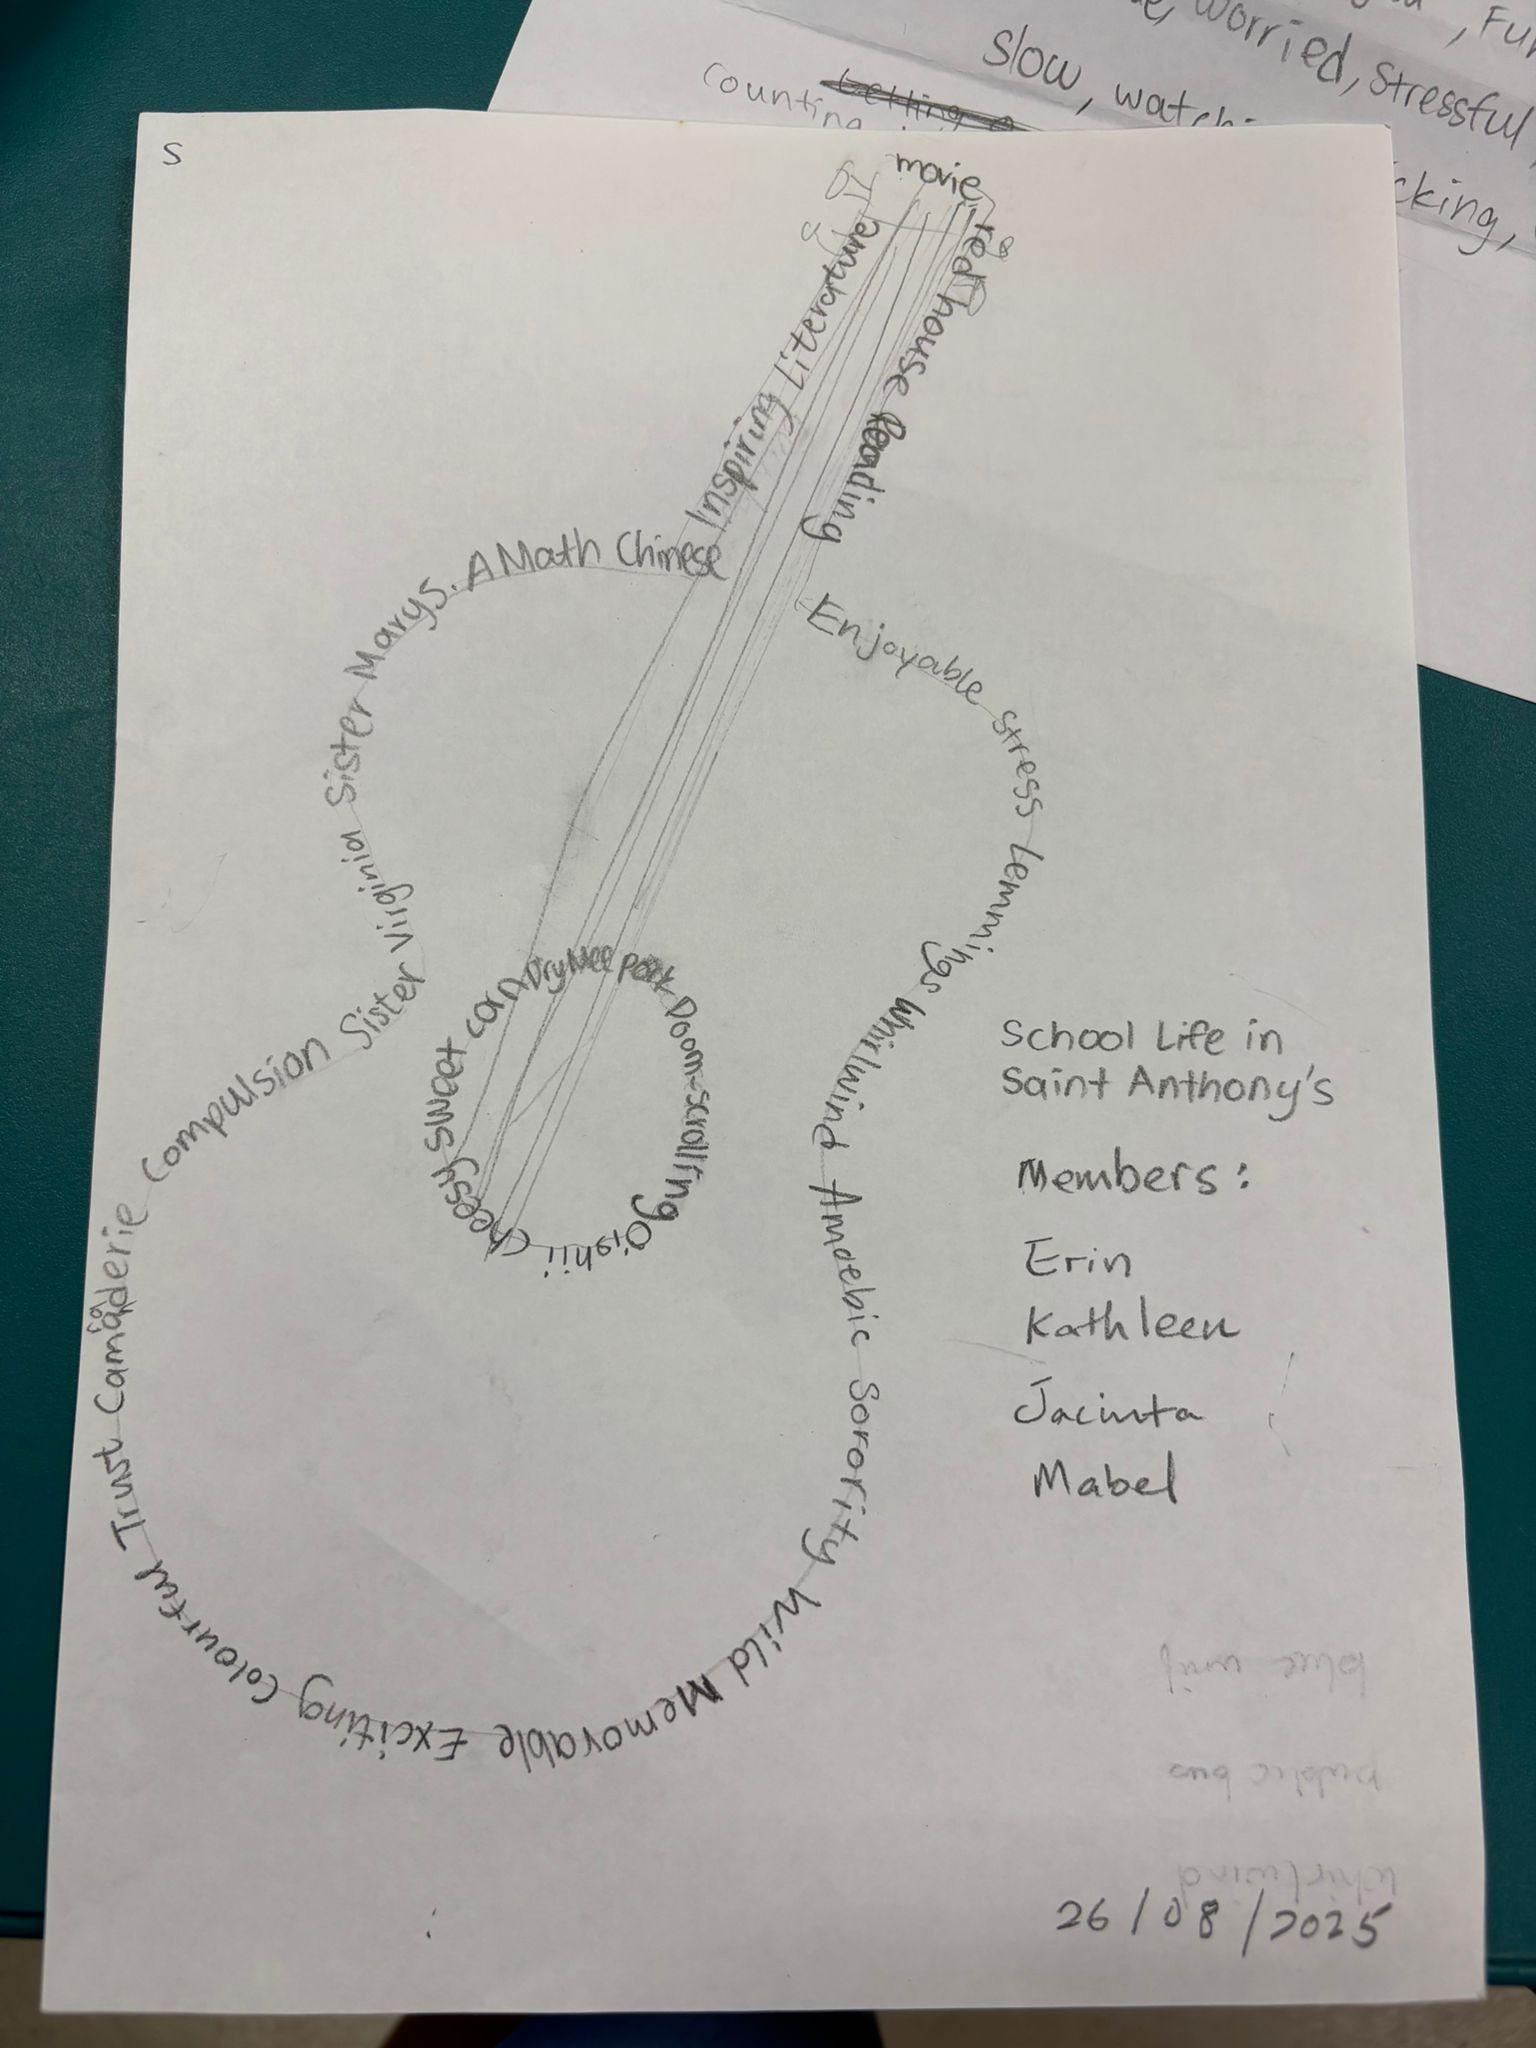 Fun
worried, stressful,
slow, watchi
counting
cking,
S
movie
red house Reading
Inspiring Literature
A Math Chinese
Sister Marys.
Sister Virginia
Compulsion
Camaraderie
Trust
Colourful
Exciting
Memorable
Wild
Sorority
Amoebic
Whirlwind
lemmings
stress
Enjoyable
Dry Mee pok Doom-scrolling
Oishii Cheesy sweet corn
School Life in
Saint Anthony's
Members:
Erin
Kathleen
Jacinta
Mabel
blue unif
public bus
whirlwind
26/08/2025